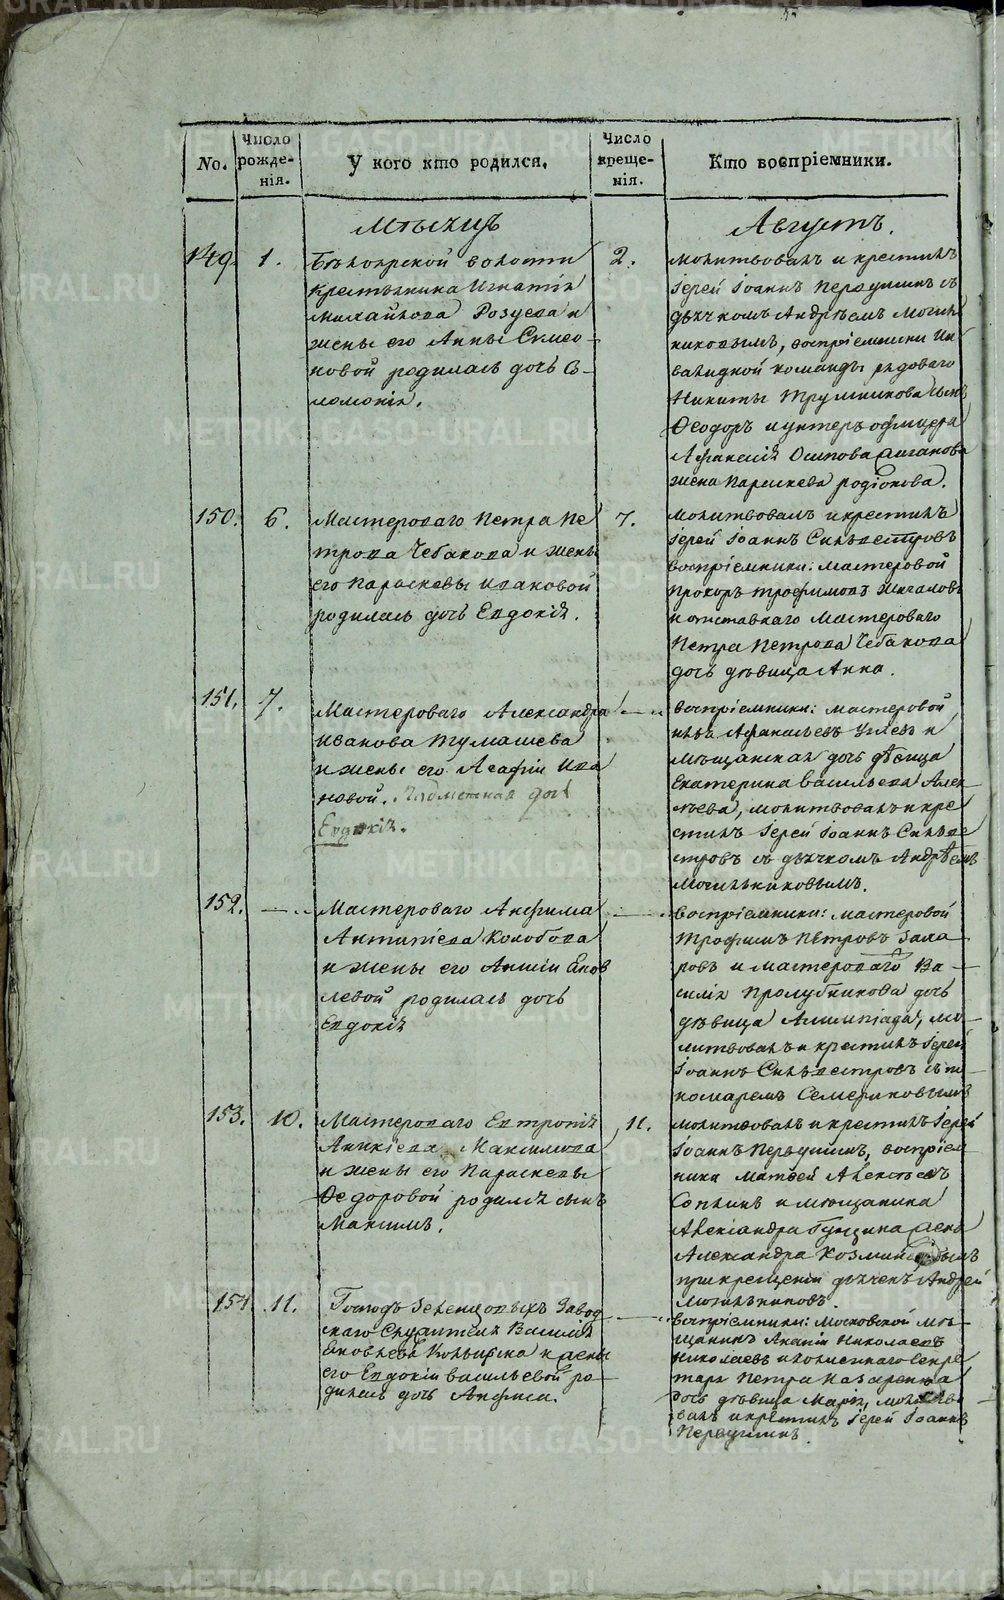 No. Число рожденія. У кого кто родился. Число крещенія. Кто воспріемники.
Мѣсяцъ Августъ.
149. 1.
Бѣлоярской волости
крестьянина Игнатія
Михайлова Розуева и
жены его Анны Симео-
новой родилась дочь Со-
ломонія.
2.
молитвовалъ и крестилъ
Іерей Іоаннъ Первушинъ съ
дьячкомъ Андреемъ Могиль
никовымъ, воспріемники Ин
валидной команды рядоваго
Никиты Трушникова сынъ
Ѳеодоръ и унтеръ офицера
Афанасія Осипова
жена Параскева родіонова.
150. 6.
Мастероваго Петра Пе
трова Чебакова и жены
его Параскевы Ивановой
родилась дочь Евдокія.
7.
молитвовалъ и крестилъ
Іерей Іоаннъ Сильвестровъ
воспріемники: мастеровой
Прохоръ Трофимовъ
и отставнаго Мастероваго
Петра Петрова Чебакова
дочь дѣвица Анна.
151. 7.
Мастероваго Александра
Иванова Тумашева
и жены его Агафіи Ива
новой. дочь
Евдокія.
— ..
воспріемники: мастеровой
Афанасьевъ и
мѣщанская дочь дѣвица
Екатерина Васильева Алек
сѣева, молитвовалъ и кре
стилъ Іерей Іоаннъ Сильве
стровъ съ дьячкомъ Андреемъ
Могильниковымъ.
152. — ..
Мастероваго Анфима
Антипіева Колобова
и жены его Анисіи Яков
левой родилась дочь
Евдокія
— ..
Воспріемники: мастеровой
Трофимъ Петровъ Заха
ровъ и мастероваго Ва-
силія Пролубникова дочь
дѣвица Алимпіада, мо-
литвовалъ и крестилъ Іерей
Іоаннъ Сильвестровъ съ по
номаремъ Семериковымъ
153. 10.
Мастероваго Евтропія
Аникіева Максимова
и жены его Параскевы
Ѳедоровой родился сынъ
Максимъ.
11.
молитвовалъ и крестилъ Іерей
Іоаннъ Первушинъ, воспріем
ники Матвей Алексеевъ
и мѣщанина
Александра жена
Александра
при крещеніи дьячекъ Андрей
Могильниковъ.
154 11.
Господъ Зеленцовыхъ Завод
скаго Служителя Василія
Яковлева и жены
его Евдокіи Васильевой ро-
дилась дочь Анфиса.
— ..
Воспріемники: Московской мѣ-
щанинъ Николаевъ
Николаевъ и Секре
таря Петра Назаренкова
дочь дѣвица Марія, молитво
валъ и крестилъ Іерей Іоаннъ
Первушинъ.
METRIKI.GASO-URAL.RU